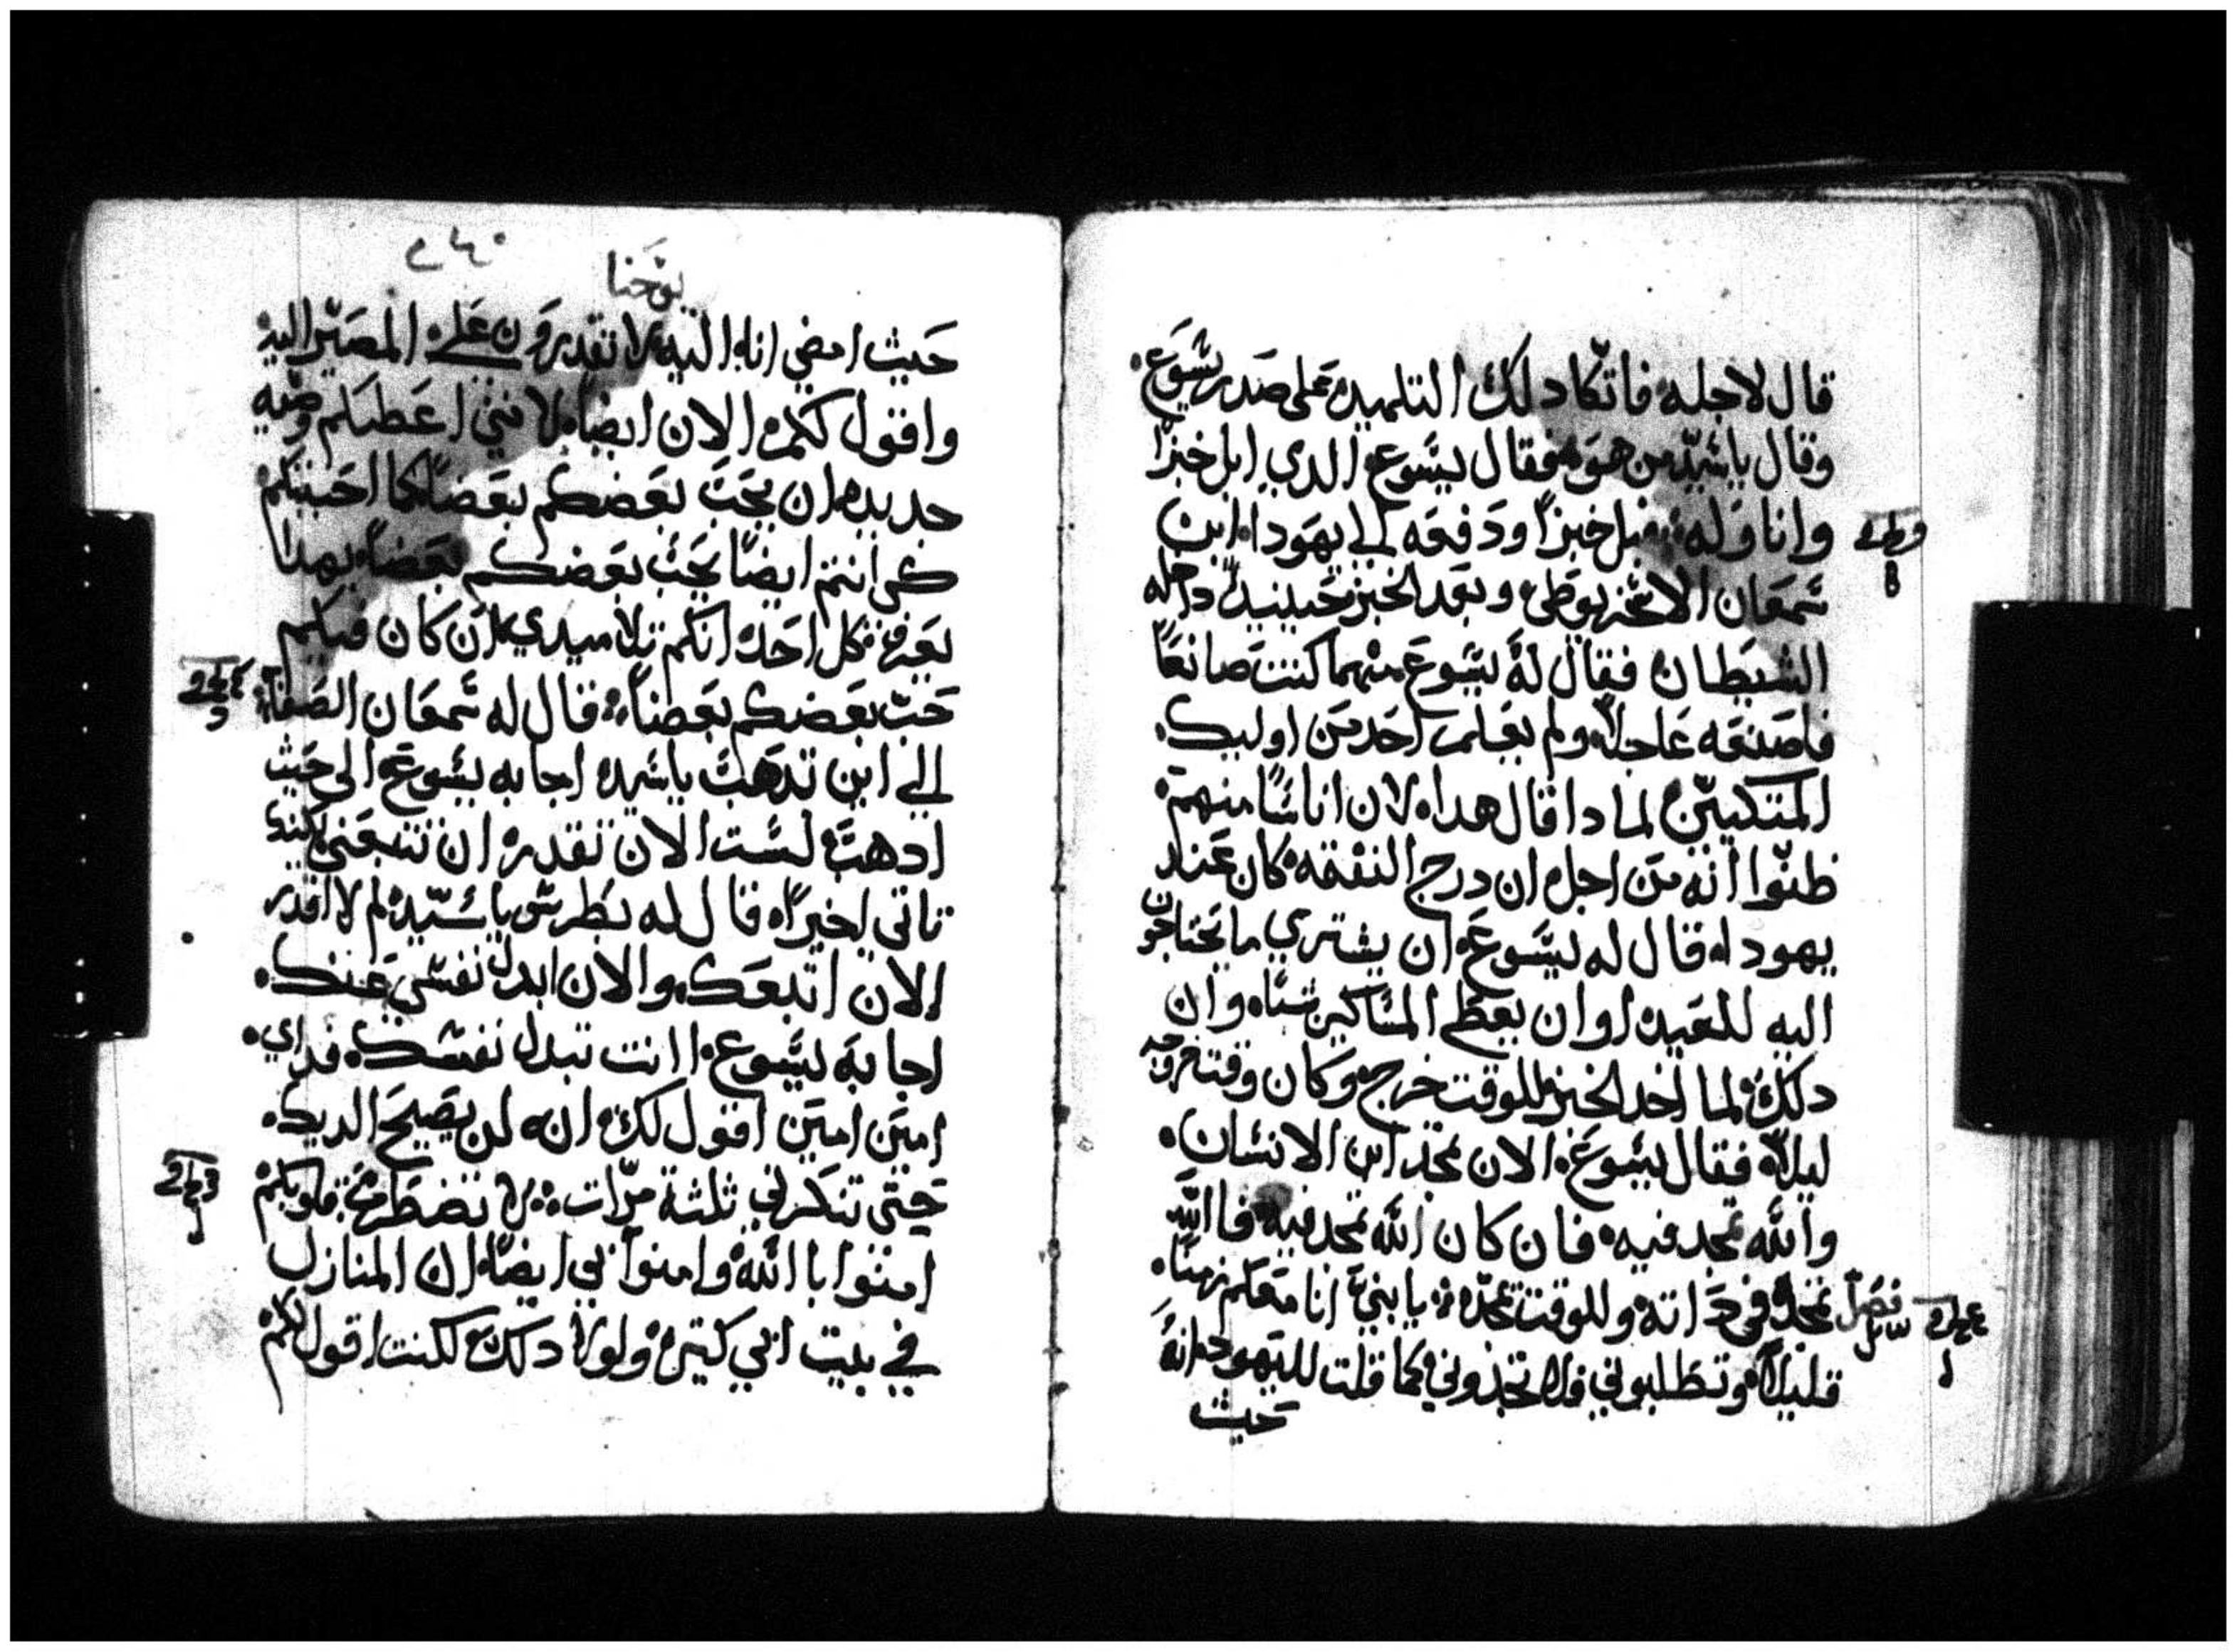 قال لاجله فاتكا دلك التلميد على صدر يسوع
وقال ياسيد من هو فقال يسوع الدي ابل خبزًا
واناوله فبل خبزًا ودفعه الى يهودا ابن
شمعان الاسخريوطي وبعد الخبز حينيد داخله
الشيطان فقال له يسوع مهما كنت صانعًا
فاصنعه عاجلًا ولم يعلم احد من اوليك
المتكيين لمادا قال هدا لان اناسًا منهم
ظنوا انه من اجل ان درج النفقه كان عند
يهودا قال له يسوع ان يشتري ما يحتاجون
اليه للعيد او ان يعطي المساكين شيًا وان
دلك لما اخد الخبز للوقت خرج وكان وقت خروجه
ليلًا فقال يسوع الان مجد ابن الانسان
والله تمجد فيه فان كان الله تمجد فيه فاالله
فصل
يمجده في داته وللوقت يمجده يا بني انا معكم زمنًا
قليلًا وتطلبوني فلا تجدوني كما قلت لليهود انه
حيث
يوحنا
حيث امضي انا اليه لا تقدرون على المصير اليه
واقول لكم الان ايضًا لانني اعطيكم وصيه
جديده ان يحب بعضكم بعضًا كما احببتكم
كي انتم ايضًا يحب بعضكم بعضًا بهدا
يعرف كل احد انكم تلاميدي ان كان فيكم
حب بعضكم بعضًا قال له شمعان الصفا
الى اين تدهب ياسيد اجابه يسوع الى حيث
ادهب لست الان تقدر ان تتبعني لكنك
تاتي اخيرًا قال له بطرس ياسيد لم لا اقدر
الان اتبعك والان ابدل نفسي عنك
اجابه يسوع اانت تبدل نفسك فداي
امين امين اقول لك انه لن يصيح الديك
حتى تنكرني ثلثة مرات لا تضطرب قلوبكم
امنوا باالله وامنوا بي ايضًا ان المنازل
في بيت ابي كتيره ولولا دلك لكنت اقول لكم